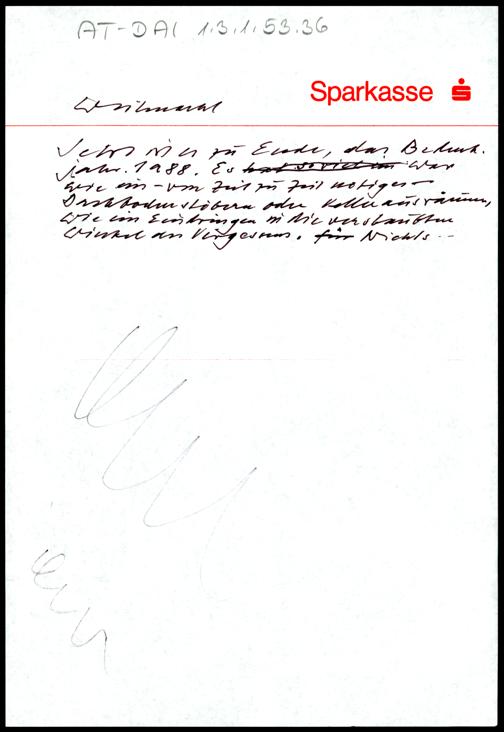 AT-DAI 1.3.1.53.36
Sparkasse
Weihnacht
Jetzt ist er zu Ende, das Bedenk-
jahr. 1988. Es hat soviel in War
wie ein – von Zeit zu Zeit nötiges –
Dachbodenstöbern oder Kellerausräumen,
wie ein Eindringen in die verstaubten
Winkel des Vergessens. für Nichts --